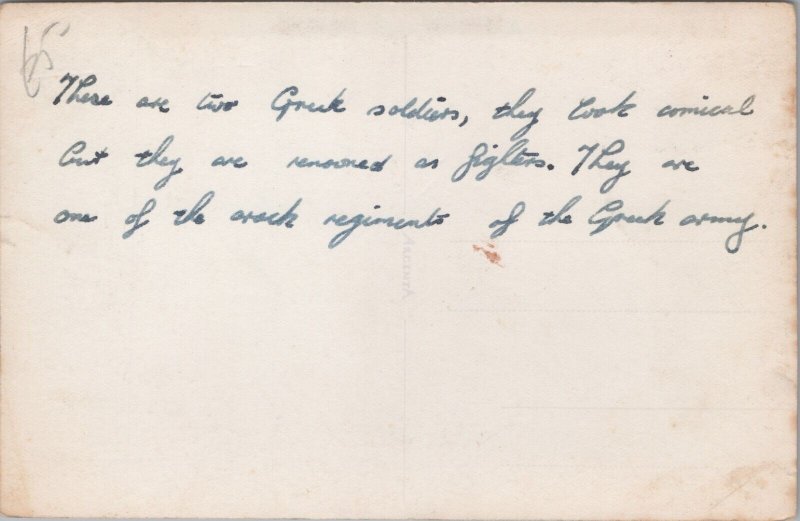 65
These are two Greek soldiers, they look comical
but they are renowned as fighters. They are
one of the crack regiments of the Greek army.